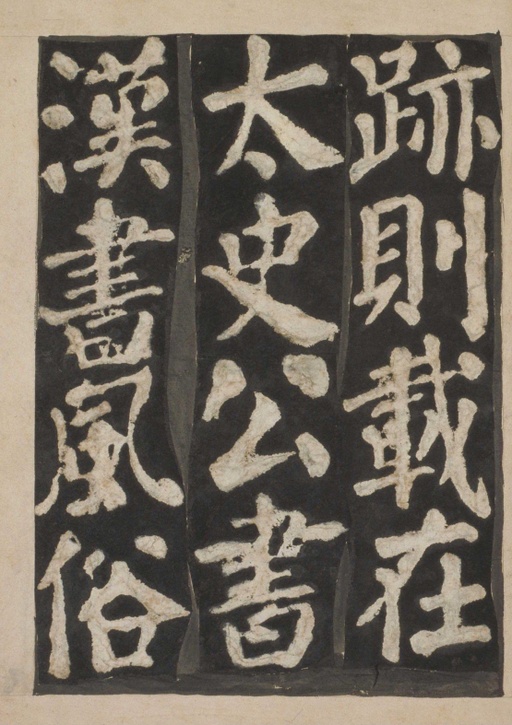 跡則載在
太史公書
漢書風俗